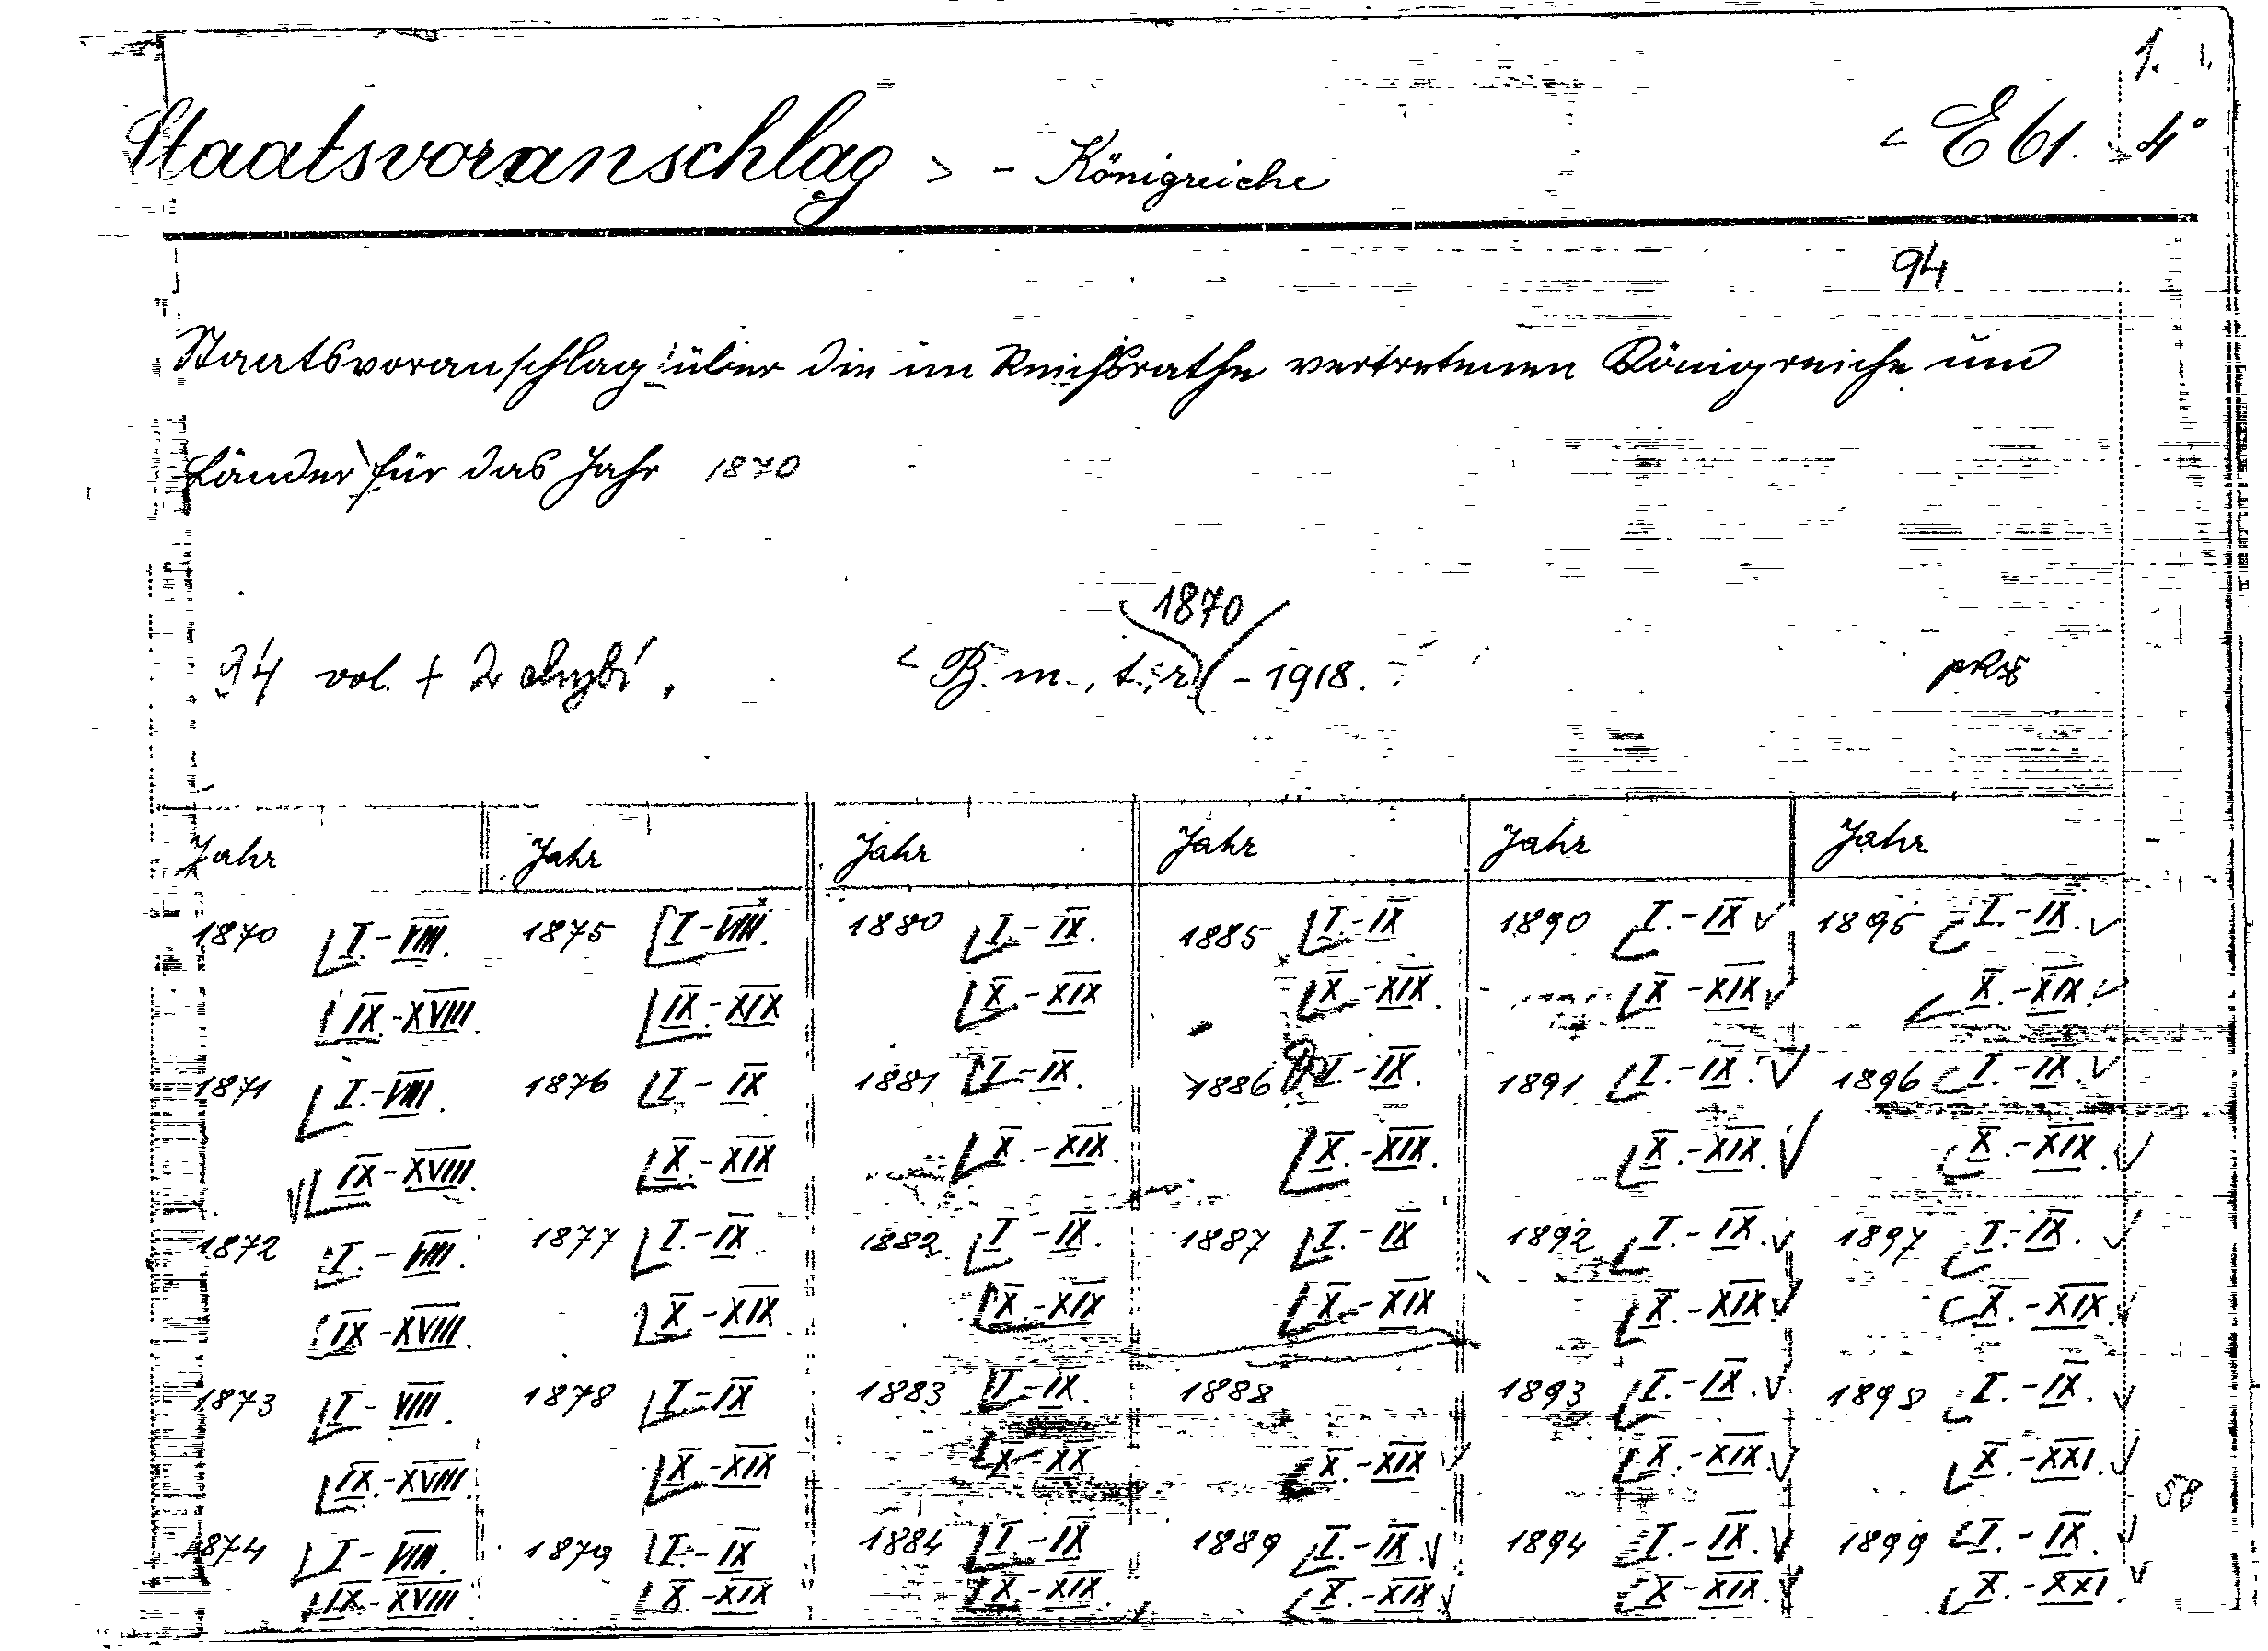 1.
Staatsvoranschlag > - Königreiche < E 61. 4°
94
Staatsvoranschlag über die im Reichsrathe vertretenen Königreiche und
Länder für das Jahr 1870
1870
94 vol. + 2 chybí. - 1918.
Jahr Jahr Jahr Jahr Jahr Jahr
1870 I-VIII. 1875 I-VIII. 1880 I-IX. 1885 I.-IX 1890 I.-IX √ 1895 I.-IX. √
IX-XVIII. IX-XIX X-XIX X-XIX. X-XIX √ X.-XIX. √
1871 I.-VIII. 1876 I-IX 1881 I-IX. 1886 I.-IX. 1891 I.-IX. √ 1896 I.-IX. √
IX-XVIII. X.-XIX X.-XIX. X.-XIX. X.-XIX. √ X.-XIX. √
1872 I.-VIII. 1877 I.-IX. 1882 I-IX. 1887 I.-IX 1892 I.-IX. √ 1897 I.-IX. √
IX-XVIII. X-XIX X-XIX X-XIX X.-XIX √ X.-XIX. √
1873 I-VIII. 1878 I-IX 1883 I-IX. 1888 1893 I.-IX. √ 1898 I.-IX. √
IX.-XVIII. X-XIX X-XX X.-XIX √ X.-XIX. √ X.-XXI. √
58
1874 I-VIII. 1879 I.-IX 1884 I.-IX 1889 I.-IX. √ 1894 I.-IX. √ 1899 I.-IX. √
IX-XVIII X-XIX X-XIX. X.-XIX. √ X-XIX. √ X.-XXI. √